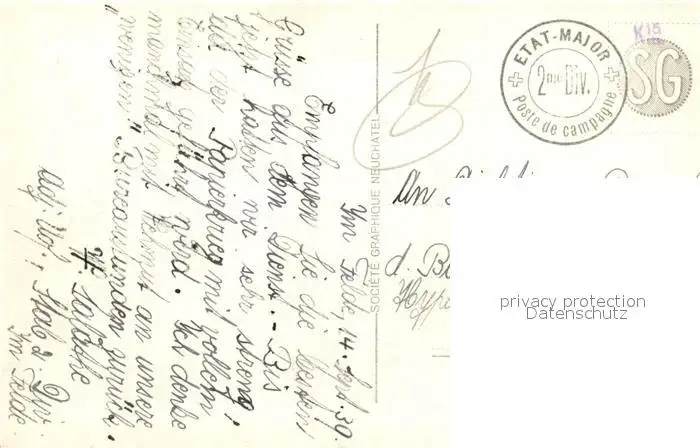 Im Felde, 14. Sept. 39.
Empfangen Sie die besten
Grüsse aus dem Dienst. - Bis
jetzt hatten wir sehr streng,
da der Papierkrieg mit vollem
Einsatz geführt wird. Ich denke
manchmal mit Heimweh an unsere
"ruhigen" Bureaustunden zurück.
H.
Adj. Uof., Stab 2. Div.
Im Felde.
SOCIÉTÉ GRAPHIQUE NEUCHATEL
K 15
ETAT-MAJOR
2me Div.
Poste de campagne
SG
An
d.
privacy protection
Datenschutz